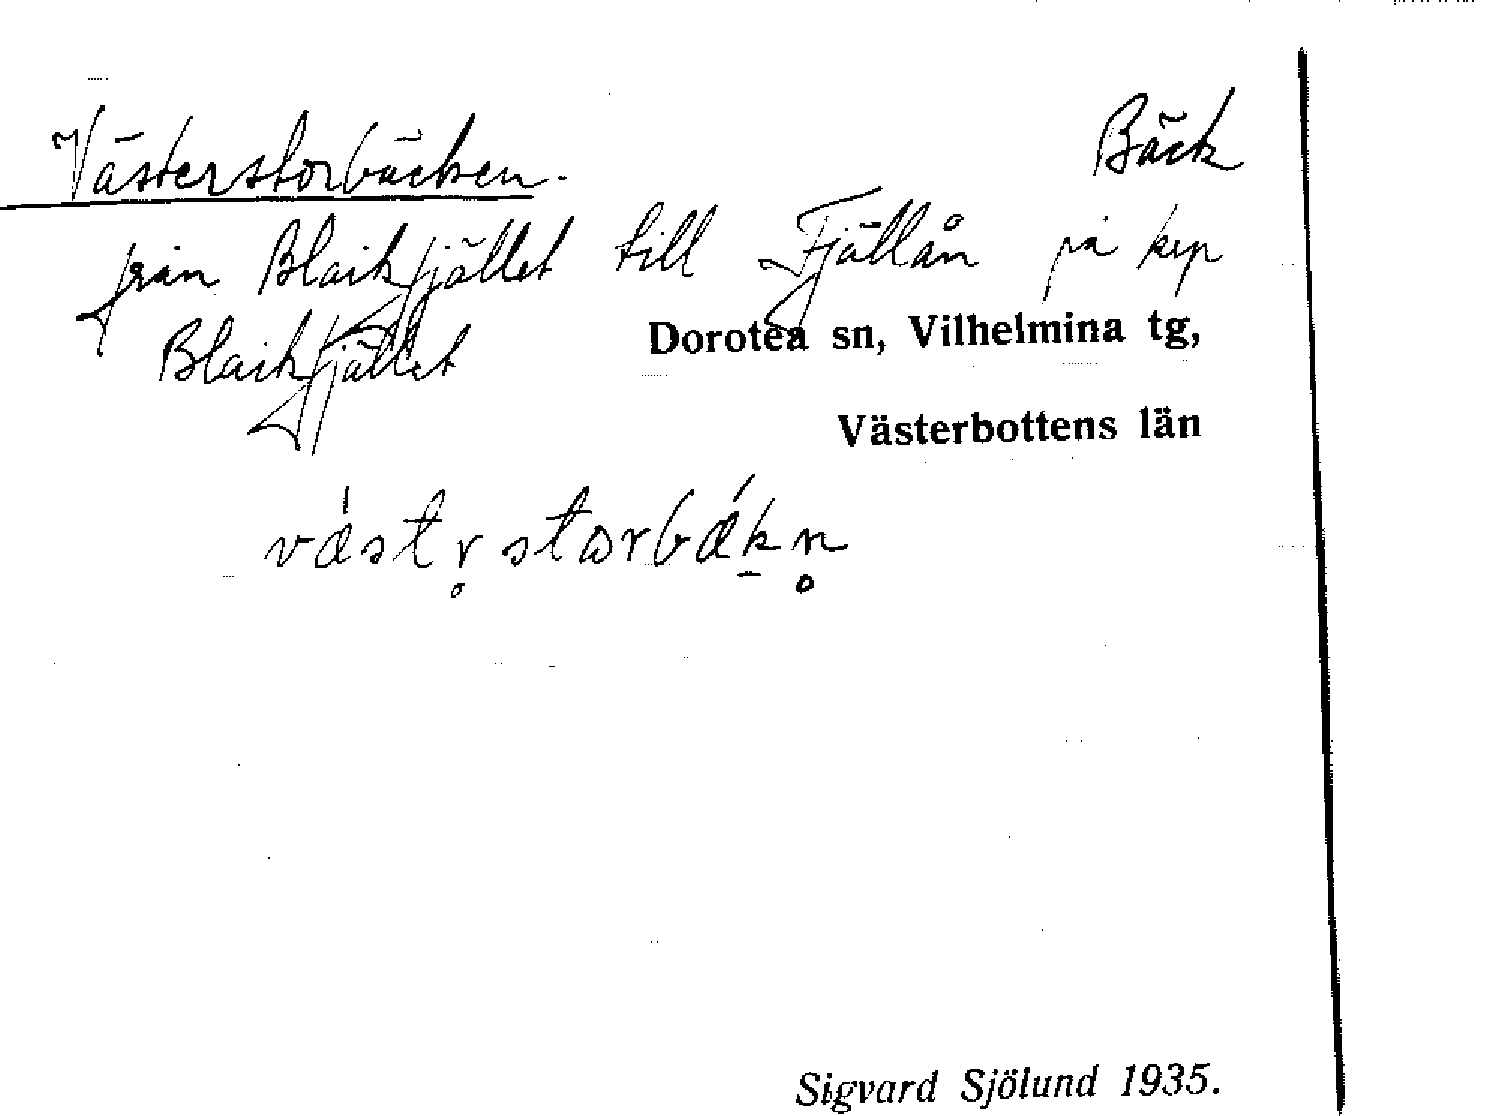 Västerstorbäcken. Bäck
från Blaikfjället till Fjällån på kep
Blaikfjället Dorotea sn, Vilhelmina tg,
Västerbottens län
væ̍str̥ storbǽk̠n̥
Sigvard Sjölund 1935.